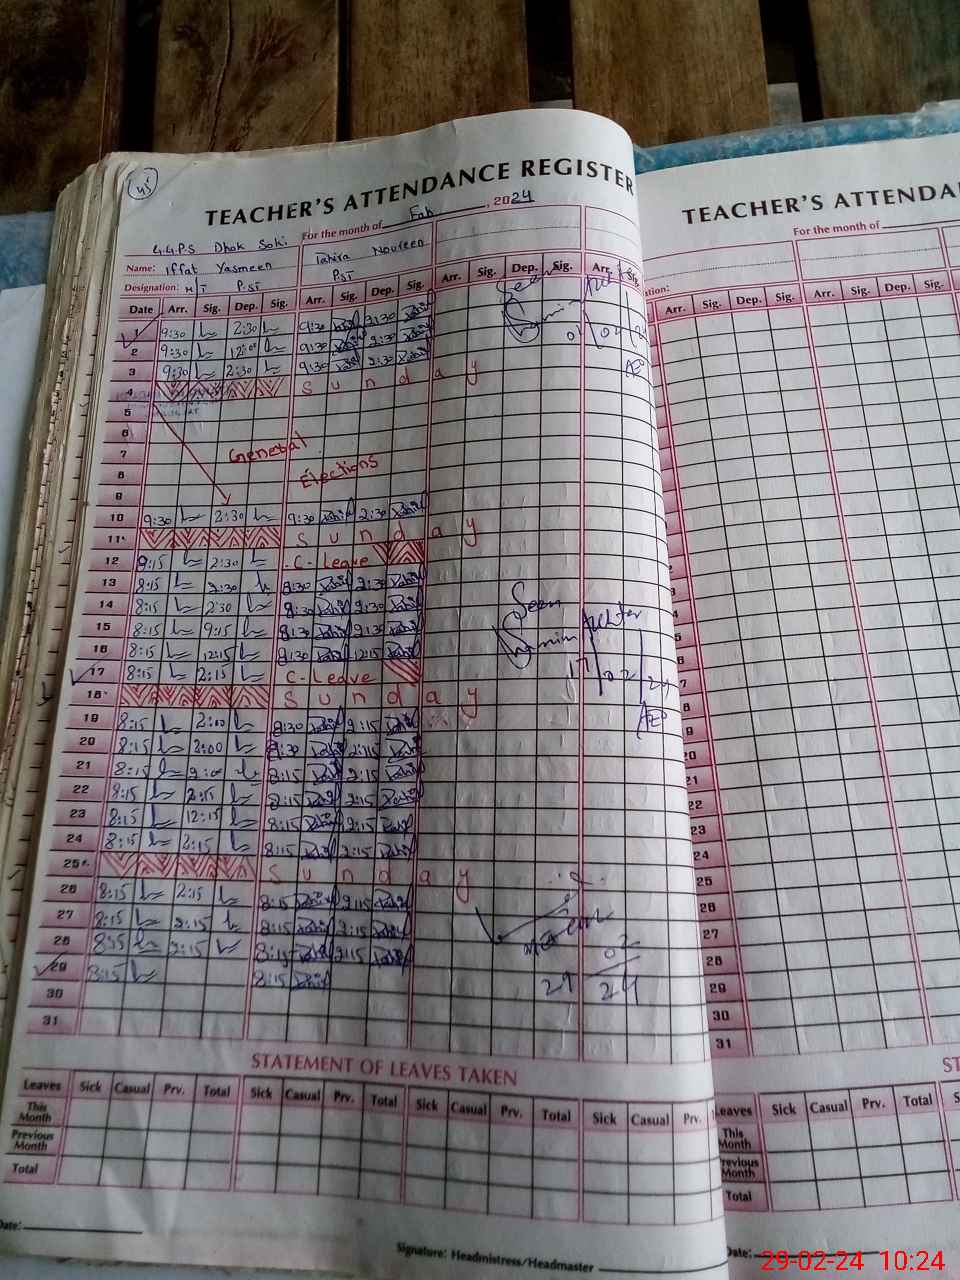 45
TEACHER'S ATTENDANCE REGISTER
For the month of Feb, 2024
G.G.P.S Dhok Sohi
Name: Iffat Yasmeen Tahira Noureen
Designation: H T P.ST P.ST
Date Arr. Sig. Dep. Sig. Arr. Sig. Dep. Sig. Arr. Sig. Dep. Sig. Arr. Sig.
1 9:30 2:30 9:30 2:30
2 9:30 12:00 9:30 2:30
3 9:30 2:30 9:30 2:30
4 Sunday
5
6
7 General
8 Elections
9
10 9:30 2:30 9:30 2:30
11 Sunday
12 8:15 2:30 C-Leave
13 8:15 2:30 8:30 2:30
14 8:15 2:30 8:30 2:30
15 8:15 2:15 8:30 2:30
16 8:15 12:15 8:30 12:15
17 8:15 2:15 C-Leave
18 Sunday
19 8:15 2:00 8:30 2:15
20 8:15 2:00 8:30 2:15
21 8:15 2:00 8:15 2:15
22 8:15 2:15 8:15 2:15
23 8:15 12:15 8:15 2:15
24 8:15 2:15 8:15 2:15
25 Sunday
26 8:15 2:15 8:15 2:15
27 8:15 2:15 8:15 2:15
28 8:15 2:15 8:15 2:15
29 8:15 8:15
30
31
Seen
Shamim Akhter
17/02/24
AEO
02
29 24
STATEMENT OF LEAVES TAKEN
Leaves Sick Casual Prv. Total Sick Casual Prv. Total Sick Casual Prv. Total Sick Casual Prv.
This Month
Previous Month
Total
Date:
Signature: Headmistress/Headmaster
TEACHER'S ATTENDA
For the month of
Arr. Sig. Dep. Sig. Arr. Sig. Dep. Sig.
22
23
24
25
26
27
28
29
30
31
Leaves Sick Casual Prv. Total
This Month
Previous Month
Total
Date:
29-02-24 10:24